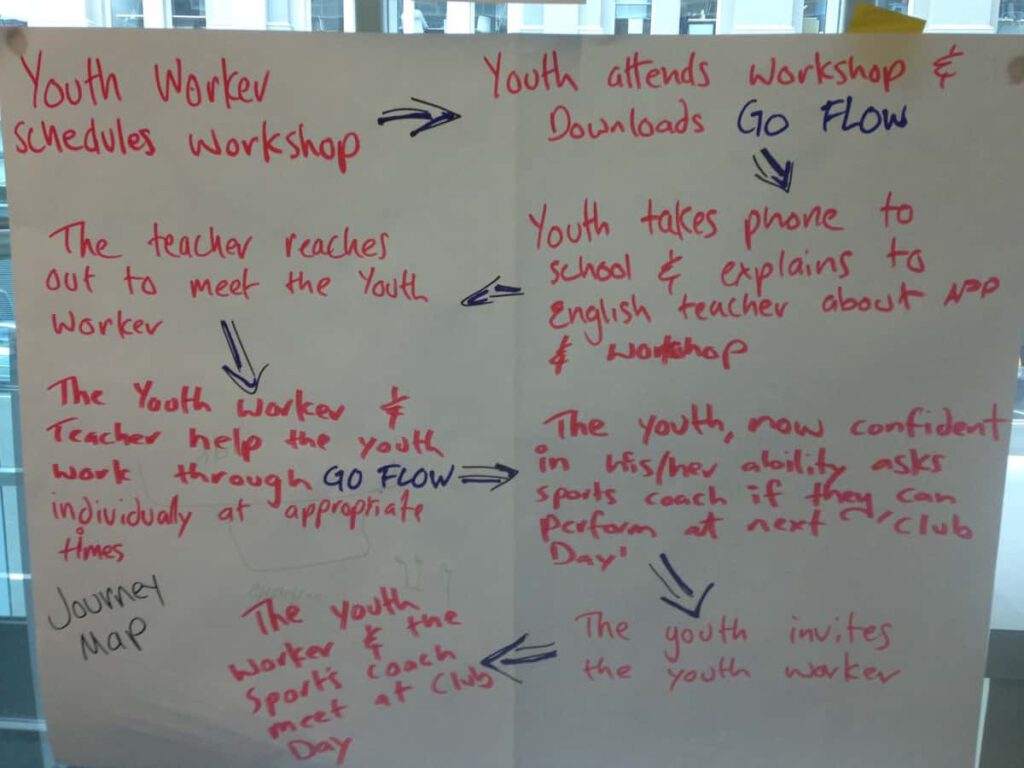 Youth Worker
schedules workshop
Youth attends workshop &
Downloads GO FLOW
Youth takes phone to
school & explains to
English teacher about APP
& workshop
The teacher reaches
out to meet the Youth
Worker
The Youth Worker &
Teacher help the youth
work through GO FLOW
individually at appropriate
times
The youth, now confident
in his/her ability asks
sports coach if they can
perform at next 'Club
Day'
The youth invites
the youth worker
The youth
worker & the
Sports coach
meet at Club
Day
Journey
Map